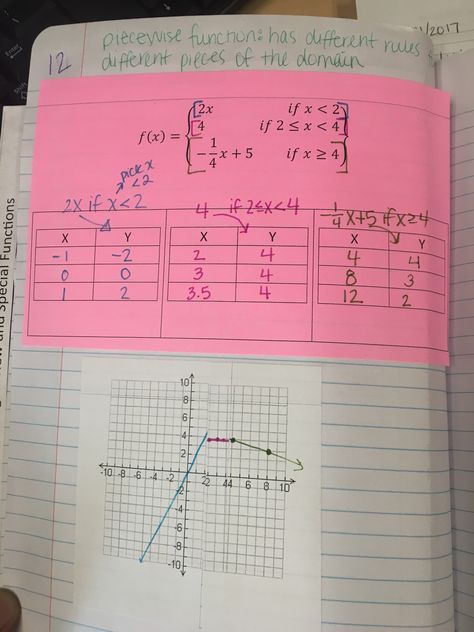 1/2017
12 piecewise function: has different rules
different pieces of the domain
f(x) = { 2x if x < 2
4 if 2 ≤ x < 4
-1/4x + 5 if x ≥ 4
pick x
< 2
2x if x < 2
4 if 2 ≤ x < 4
1/4 x + 5 if x ≥ 4
X Y
-1 -2
0 0
1 2
X Y
2 4
3 4
3.5 4
X Y
4 4
8 3
12 2
and Special Functions
10
8
6
4
2
-10 -8 -6 -4 -2 2 2 4 4 6 8 10
-2
-4
-6
-8
-10